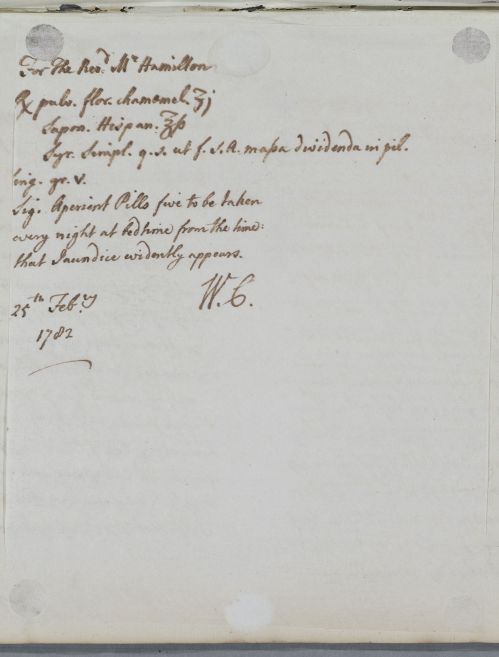 For The Revd. Mr Hamilton
℞ pulv. flor. chamemel. ʒj
Sapon. Hispan. ʒſs
Syr. Simpl. q.s. ut f. S.A. maſsa dividenda in pil.
sing. gr. v.
Sig. Aperient Pills five to be taken
every night at bedtime from the time:
that Jaundice evidently appears.
W.C.
25th Feby.
1782